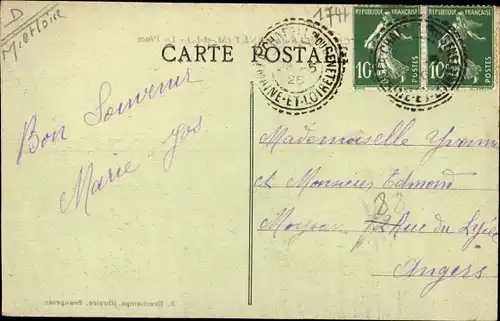 D
M et Loire
1741
CARTE POSTALE
MAINE-ET-LOIRE
26
REPUBLIQUE FRANÇAISE
10
POSTES
REPUBLIQUE FRANÇAISE
10
POSTES
Bon Souvenir
Marie-Jos
Mademoiselle Yvonne
et Monsieur Edmond
12 Rue du Lycée
Angers
Deschamps, libraire, Beaupreau